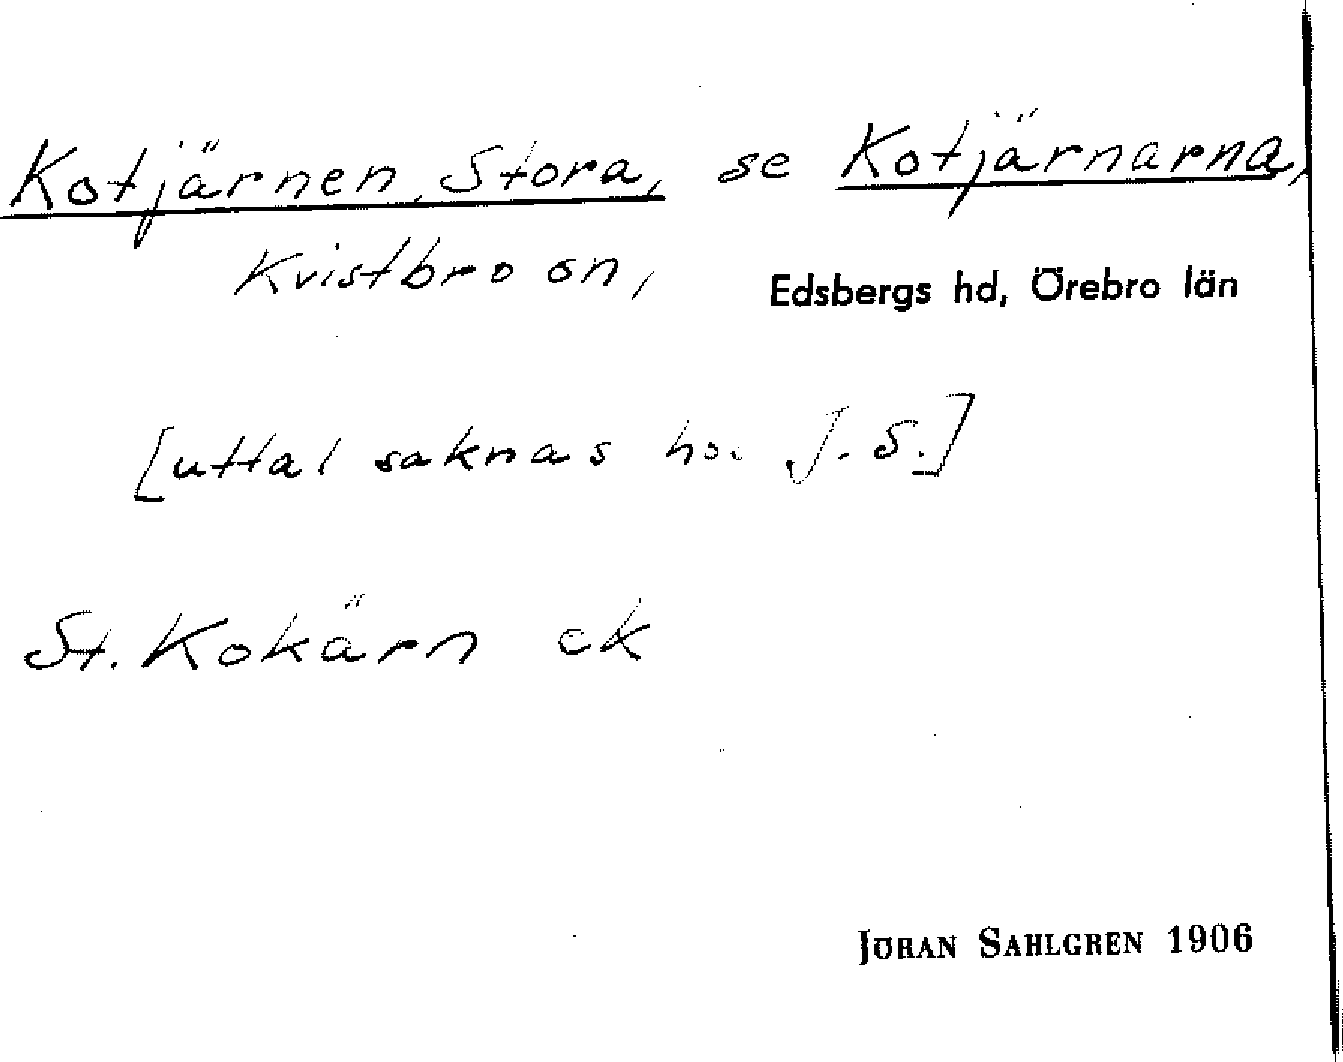 Kotjärnen, Stora, se Kotjärnarna,
Kvistbro sn, Edsbergs hd, Örebro län
[uttal saknas hos J. S.]
St. Kokärn ek
JÖRAN SAHLGREN 1906